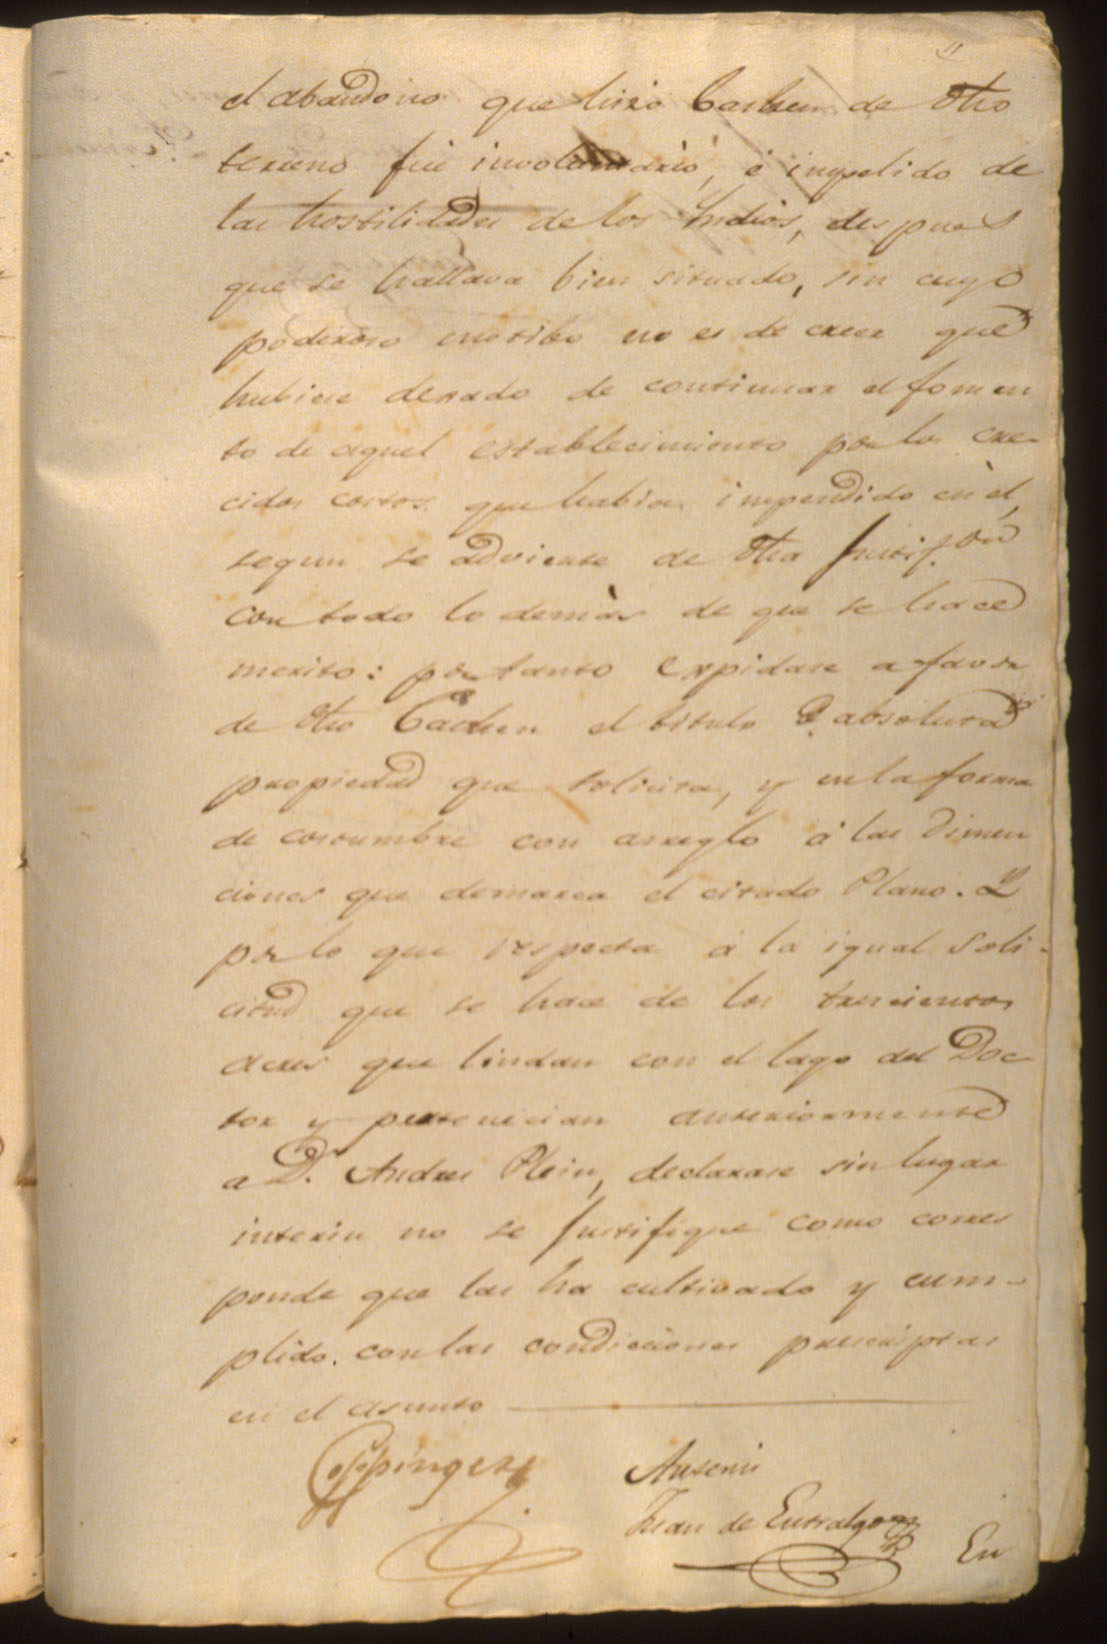 el abandono que hizo Cashen de dho
terreno fué involuntario, é impelido de
las hostilidades de los Indios, despues
que se hallava bien situado, sin cuyo
poderoso motibo no es de creer que
hubiese dexado de continuar el fomen
to de aquel establecimiento por los cre-
cidos costos que habia impendido en él,
segun se advierte de dha Justif.on
con todo lo demàs de que se hace
merito: por tanto expidase a favor
de dho Cashen el titulo de absoluta
propiedad que solicita, y en la forma
de costumbre con arreglo á las dimen
ciones que demarca el citado Plano. Y
pr lo que respecta á la igual soli-
citud que se hace de los trescientos
acres que lindan con el lago del Doc
tor y pertenecian anteriormente
a Dn. Andres Plein, declarase sin lugar
interin no se justifique como corres
ponde que las ha cultivado y cum-
plido con las condiciones prescriptas
en el asunto
Coppinger
Antemi
Juan de Entralgo
En